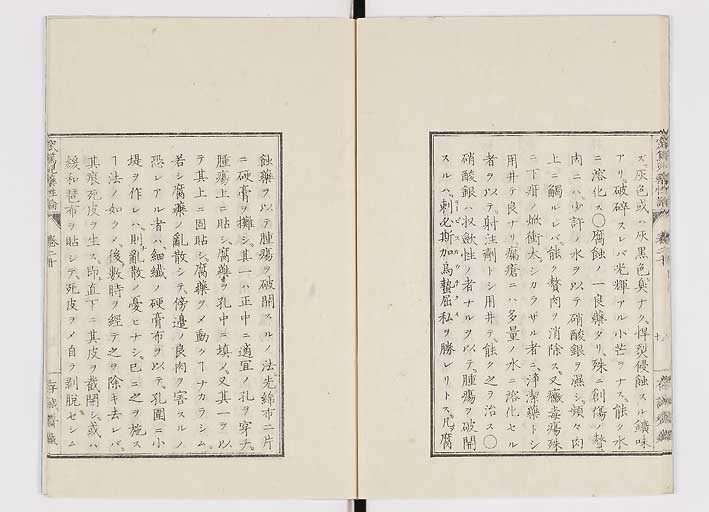 ズ灰色或ハ灰黒色臭ナク悍烈侵蝕スル鑛味
アリ破碎スレバ光輝アル小芒ヲナス能ク水
ニ溶化ス〇腐蝕ノ一良藥タリ殊ニ創傷ノ贅
肉ニハ少許ノ水ヲ以テ硝酸銀ヲ濕シ頻々肉
上ニ觸ルレバ能ク贅肉ヲ消除ス又黴毒瘍殊
ニ下疳ノ焮衝太シカラザル者ニ淨潔藥トシ
用井テ良ナリ瘻瘡ニハ多量ノ水ニ溶化セル
者ヲ以テ射注劑トシ用井テ能ク之ヲ治ス〇
硝酸銀ハ收歛性ノ者ナルヲ以テ腫瘍ヲ破開
スルハ刺必斯加烏藝屈私ヲ勝レリトス凡ソ腐
蝕藥ヲ以テ腫瘍ヲ破開スルノ法先綿布二片
ニ硬膏ヲ攤シ其一ハ正中ニ適宜ノ孔ヲ穿テ
腫瘍上ニ貼シ腐藥ヲ孔中ニ填メ又其一ヲ以
テ其上ニ固貼シ腐藥ヲメ動クヿナカラシム
若シ腐藥ノ亂散シテ傍邉ノ良肉ヲ害スルノ
恐レアル者ハ細纖ノ硬膏布ヲ以テ孔圍ニ小
堤ヲ作レハ則亂散ノ憂ヒナシ已ニ之ヲ施ス
ヿ法ノ如ク〆後數時ヲ經テ之ヲ除キ去レバ
其痕死皮ヲ生ス即直下ニ其皮ヲ截開シ或ハ
緩和琶布ヲ貼シテ死皮ヲメ自ラ剥脱セシム
卷二十